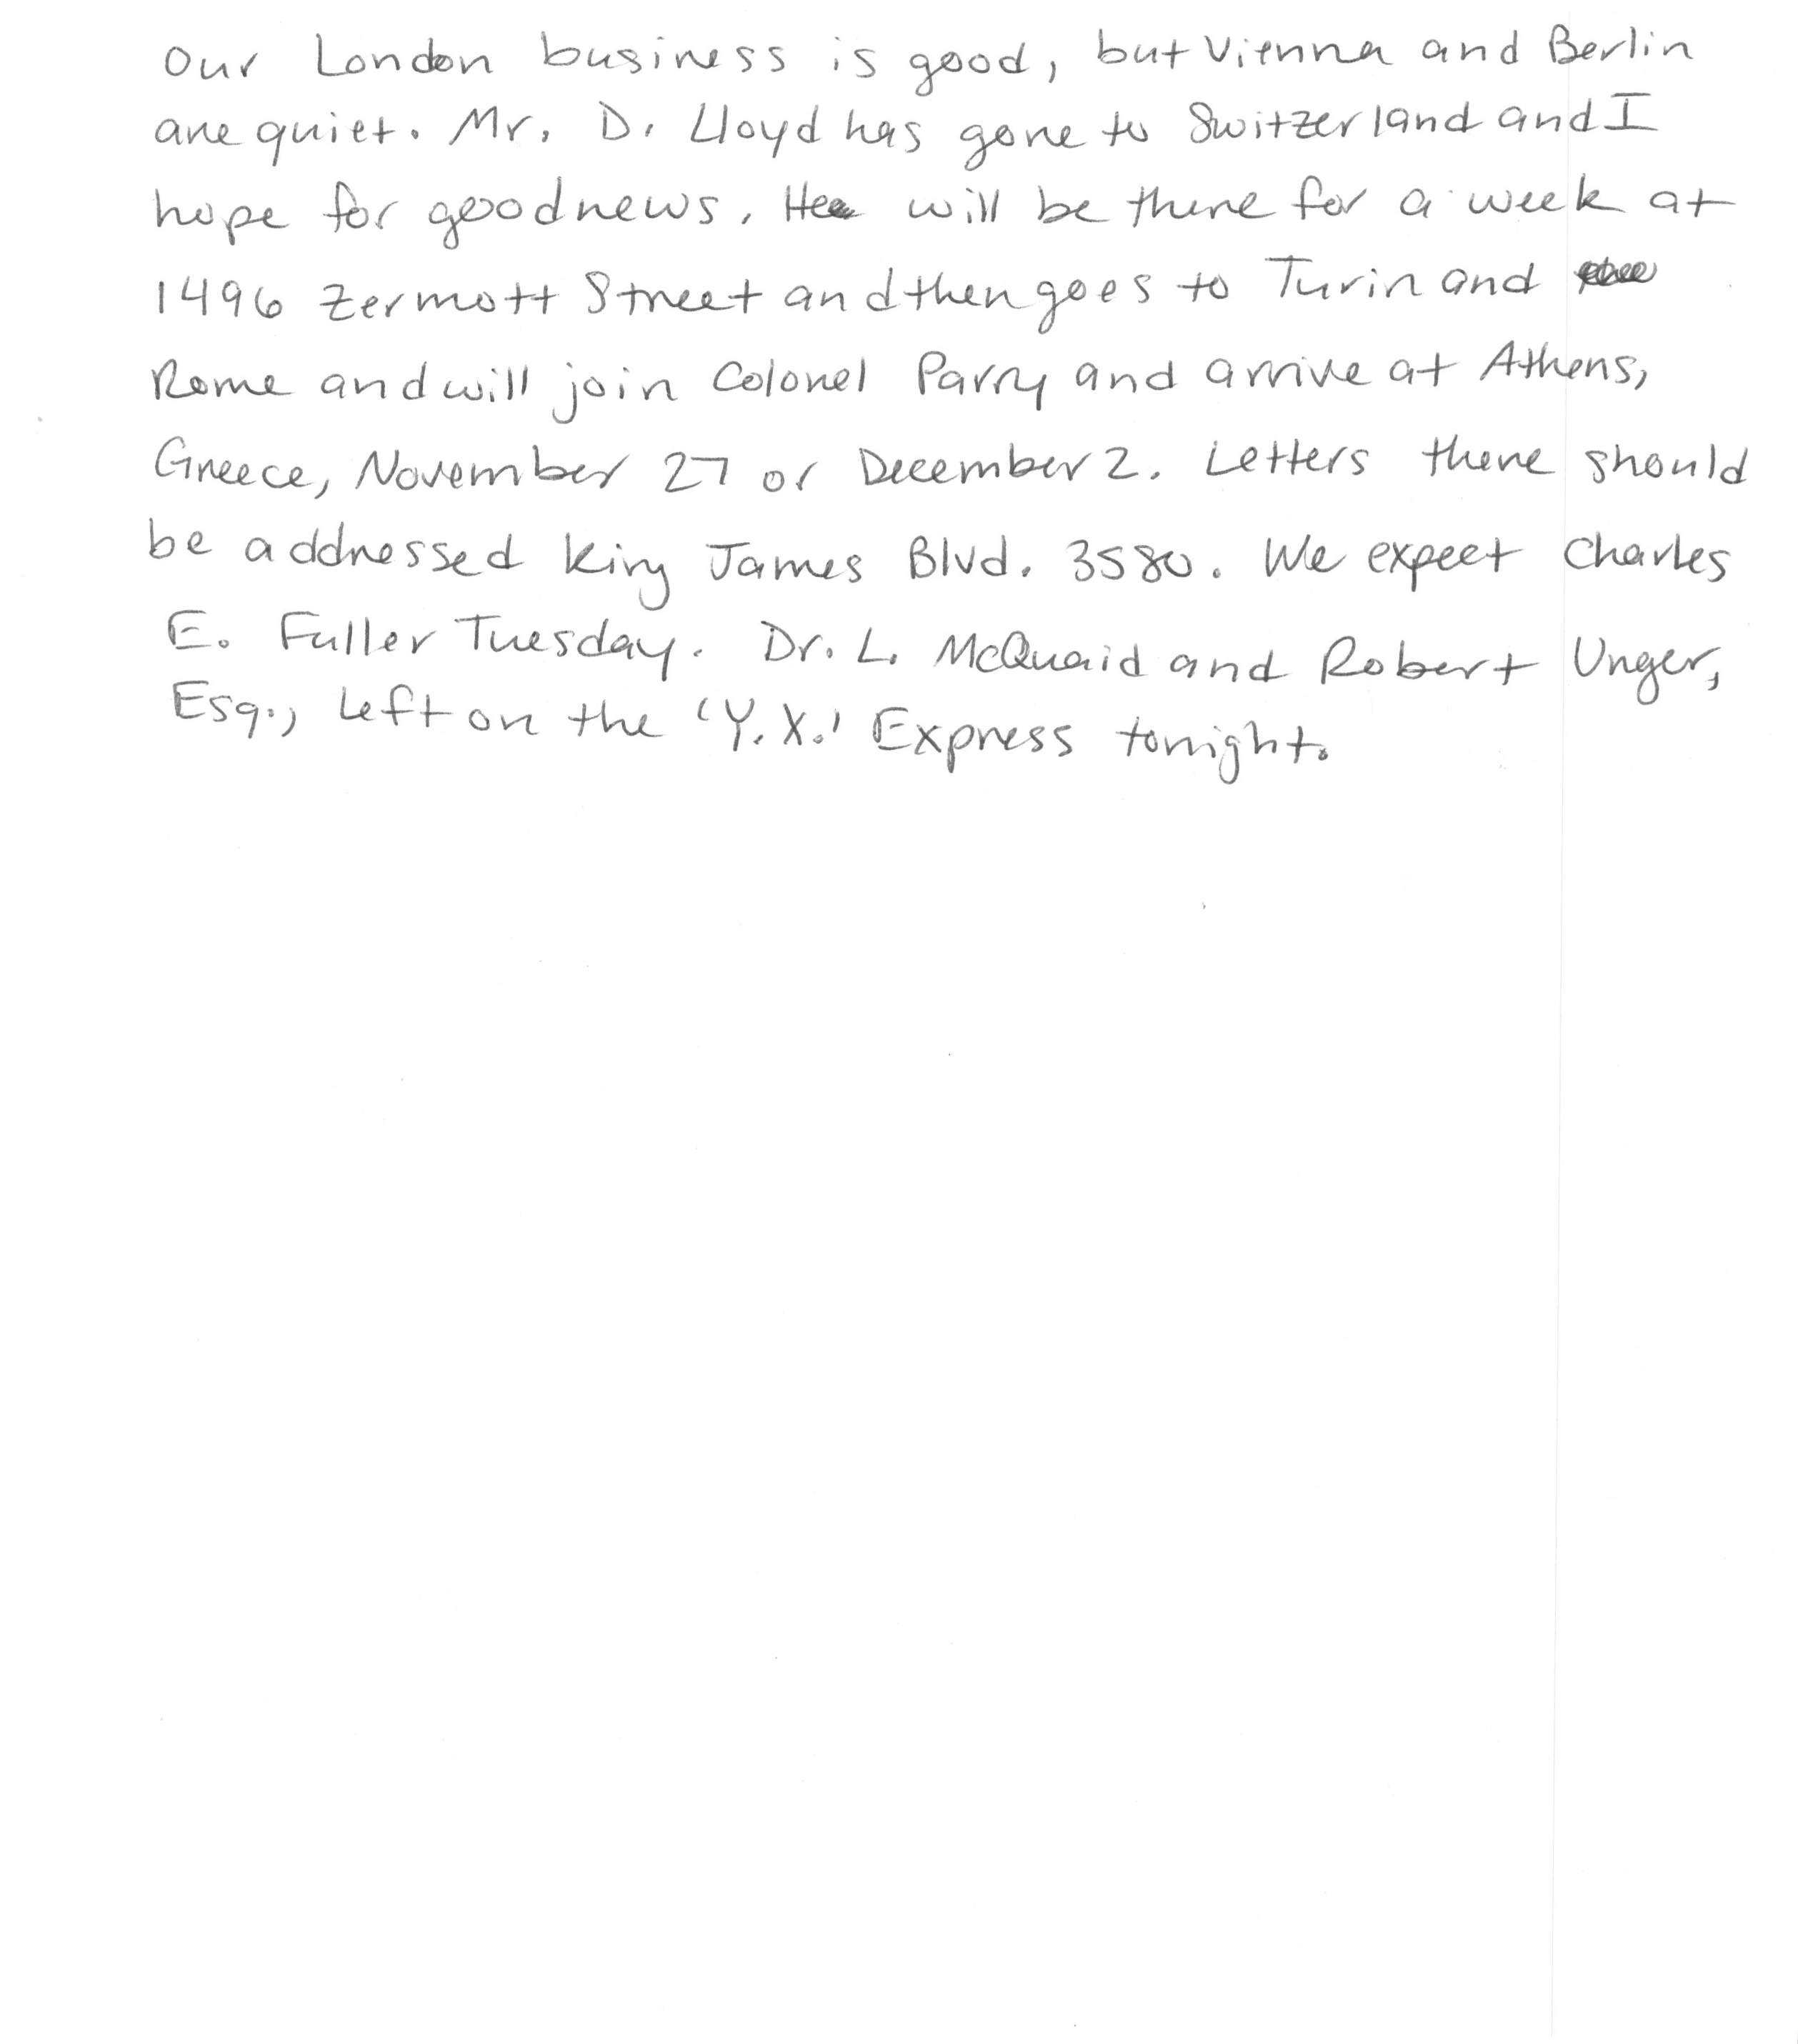 Our London business is good, but Vienna and Berlin
are quiet. Mr. D. Lloyd has gone to Switzerland and I
hope for good news. He will be there for a week at
1496 Zermott Street and then goes to Turin and
Rome and will join Colonel Parry and arrive at Athens,
Greece, November 27 or December 2. Letters there should
be addressed King James Blvd. 3580. We expect Charles
E. Fuller Tuesday. Dr. L. McQuaid and Robert Unger,
Esq., left on the 'Y.X.' Express tonight.